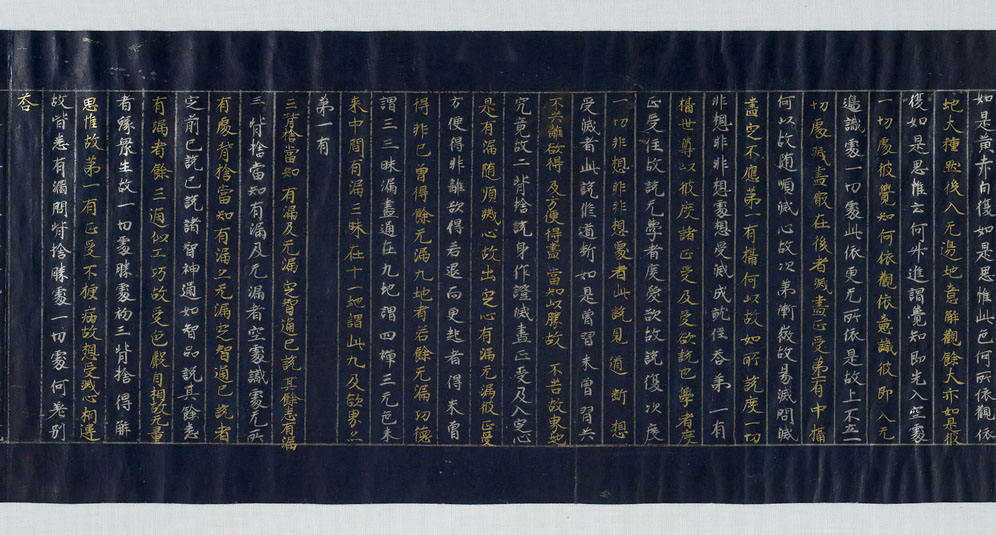 如是黄赤白復如是思惟此色何所依觀依
地大種然後入无邊地意解觀餘大亦如是彼
復如是思惟云何外進謂覺知即先入空處
一切處彼覺知何依觀依意識彼即入无
邊識處一切處此依更无所依是故上不立一
切處滅盡最在後者滅盡正受第一有中攝
何以故随順滅心故次第漸薇故易滅問滅
盡定不應第一有攝何以故如所說度一切
非想非非想處想受滅成就住荅第一有
攝世尊以彼度諸正受及受欲說也學者度
正受住故說无學者度愛欲故說復次度
一切非想非非想處者此說見道斷想
受滅者此說修道斷如是曾習未曾習共
不共離欲得及方便得盡當知以勝故不苦故東地
究竟故二背捨說身作證滅盡正受及入定心
是有漏随順滅心故出定心有漏无漏彼正受
方便得非離欲得若退而更起者得未曾
得非已曾得餘无漏九地有若餘无漏功德
謂三三昧漏盡通在九地謂四禪三无色未
来中間有漏三昧在十一地謂此九及欲界
第一有
三背捨當知有漏及无漏定智通已說其餘悉有漏
三背捨當知有漏及无漏者空處識處无所
有處背捨當知有漏及无漏定智通已說者
定前已說已說諸智神通如智品說其餘悉
有漏者餘三通似工巧故受色聲自相故无量
者緣眾生故一切處勝處初三背捨得解
思惟故第一有正受不梗病故想受滅心相違
故皆悉有漏問背捨勝處一切處何差别
荅